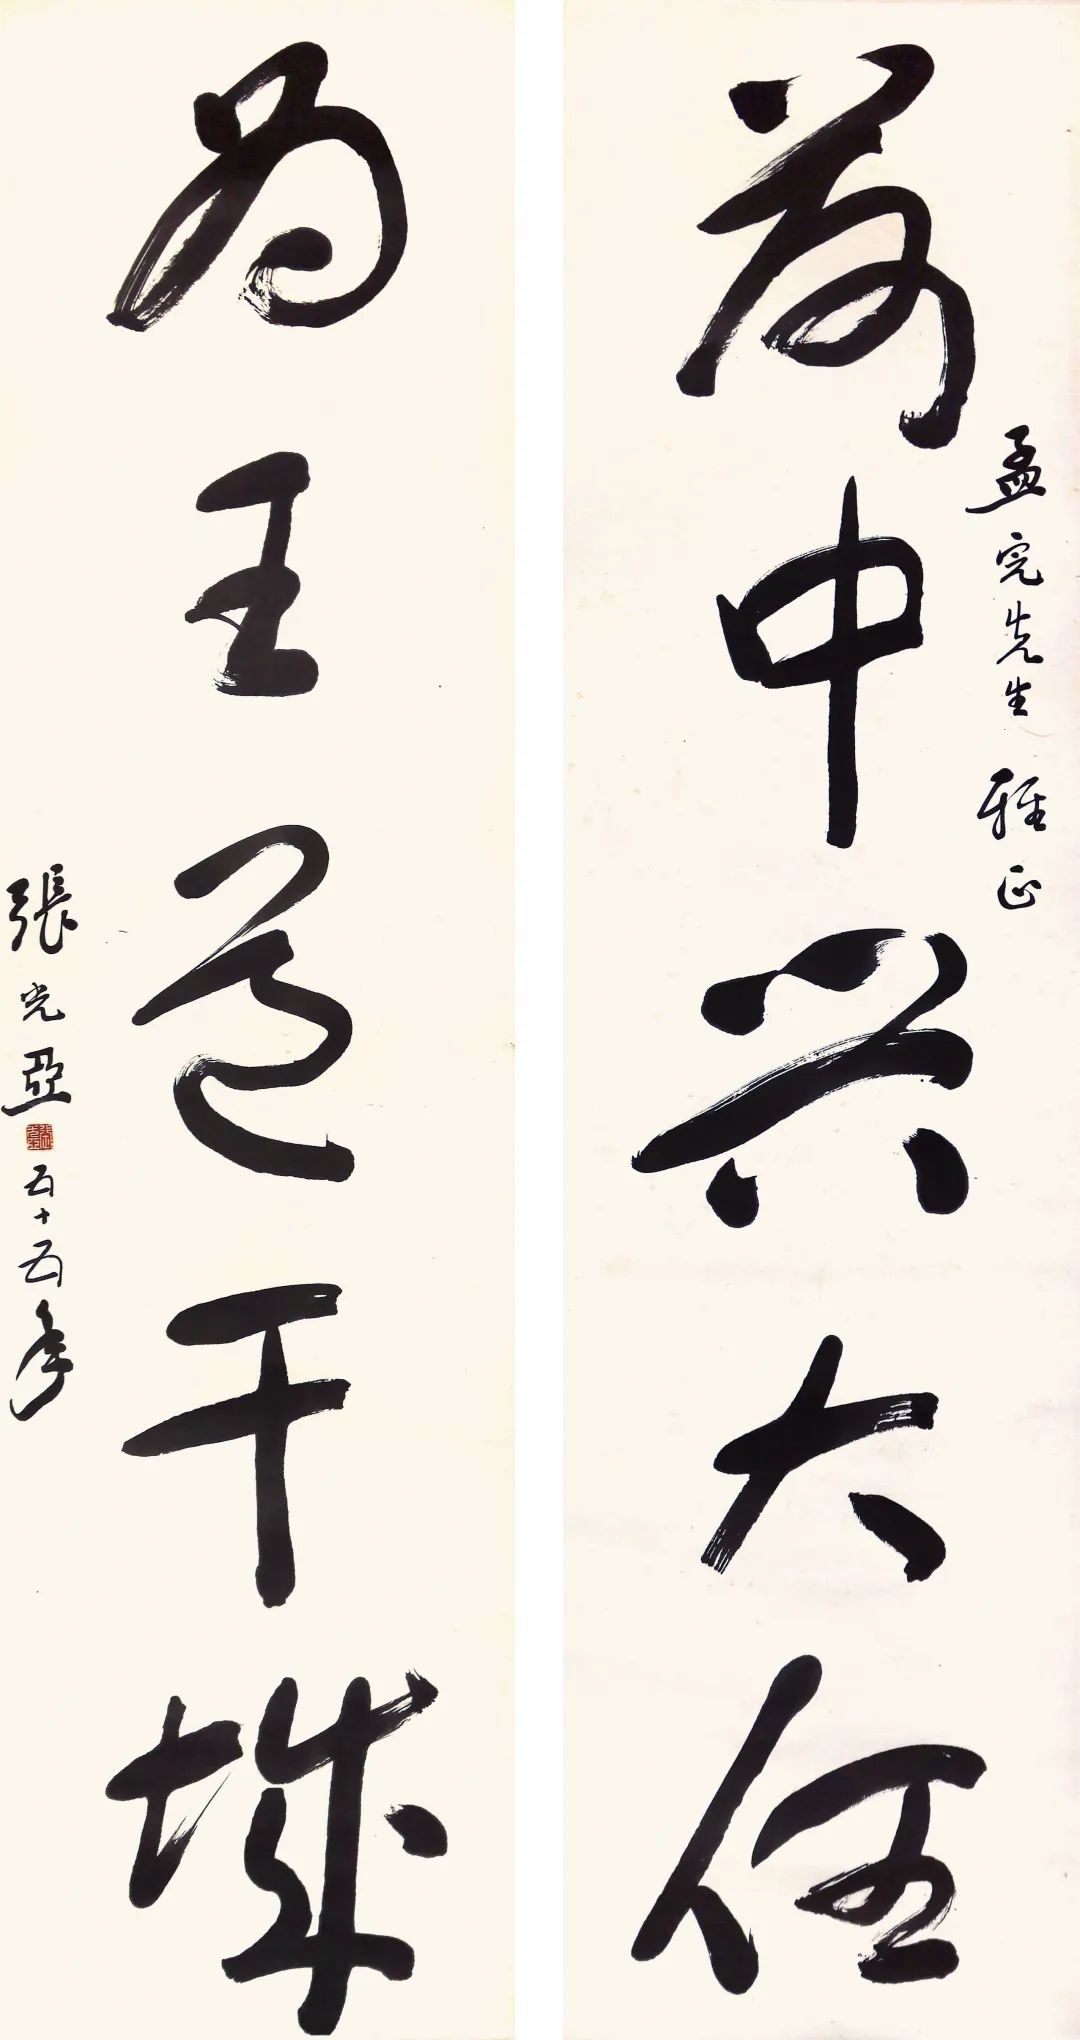 荷中興大任
孟完先生 雅正
為王道干城
張光亞 五十五年